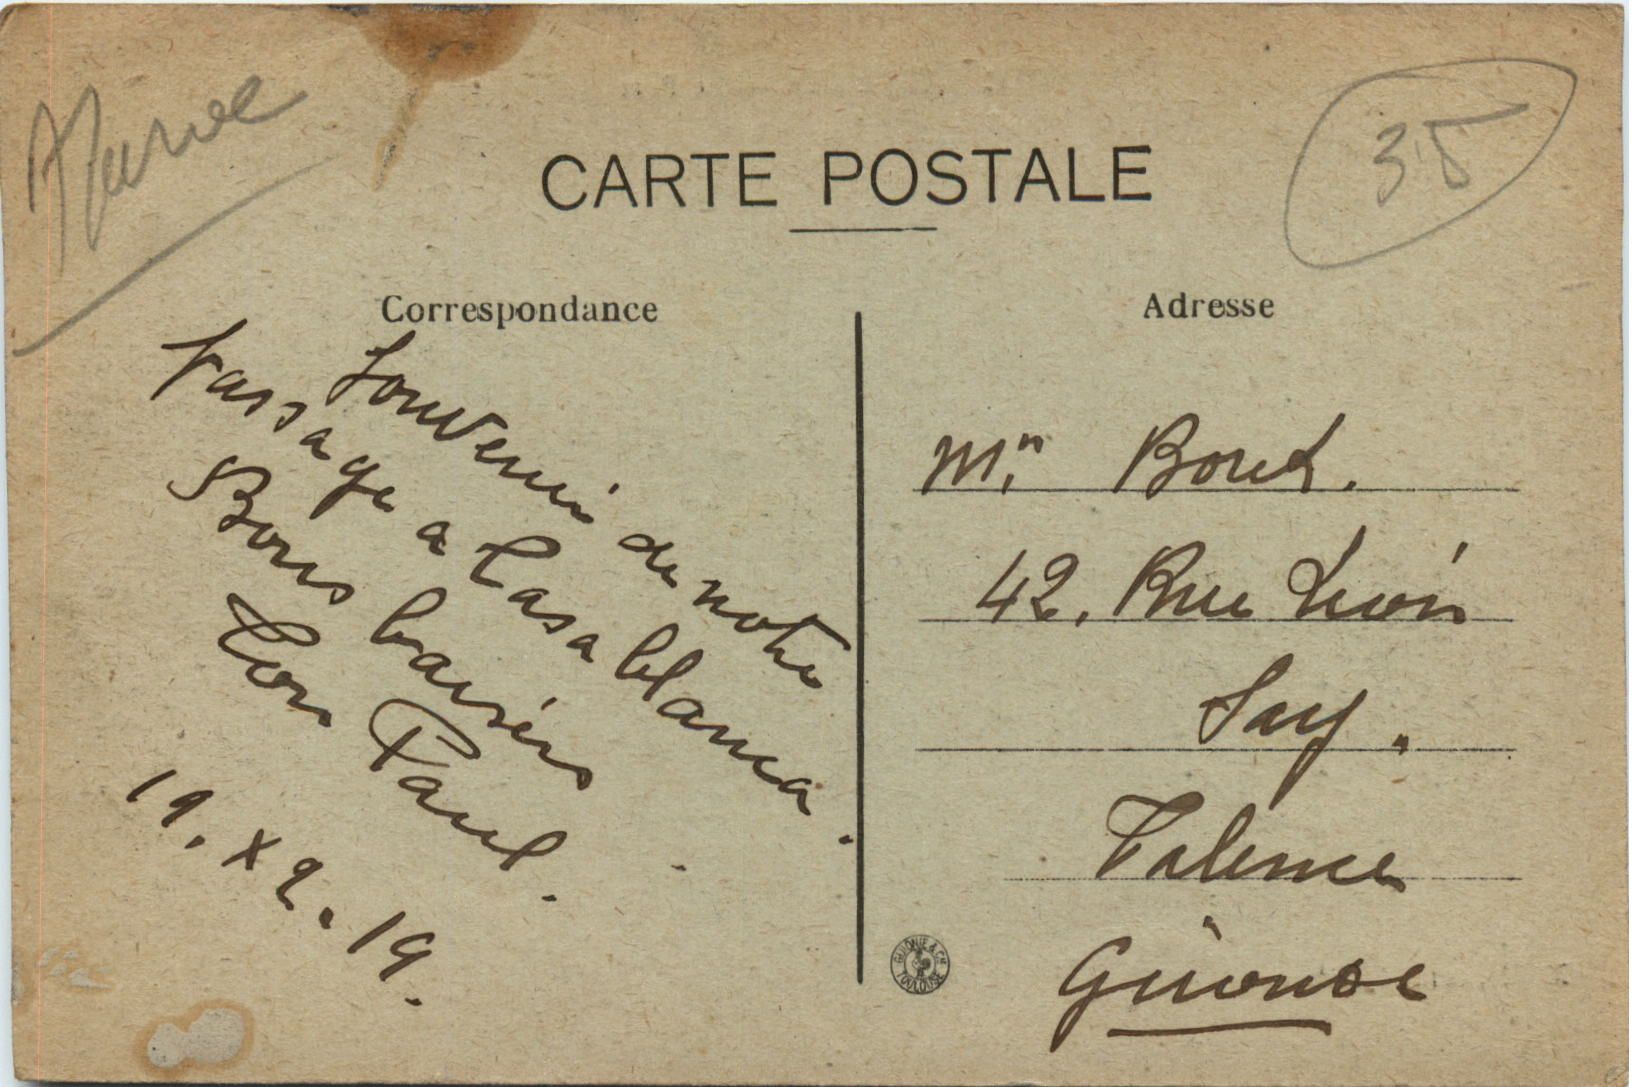 Maroc
35
CARTE POSTALE
Correspondance
Adresse
Souvenir de notre
passage a Casablanca.
Bons baisers
Ton Paul.
19. X2. 19.
Mr. Boret.
42. Rue Léon
Say.
Talence
Gironde
GUIONIE & Cie
TOULOUSE